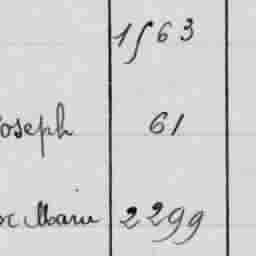 1563
Joseph 61
Marie 2299